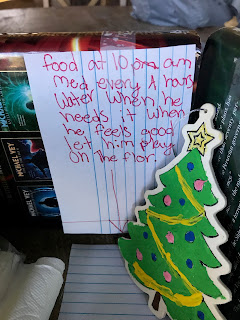 food at 10 am
med every 4 hours
Water when he
needs it when
he feels good
let him play
on the flor.